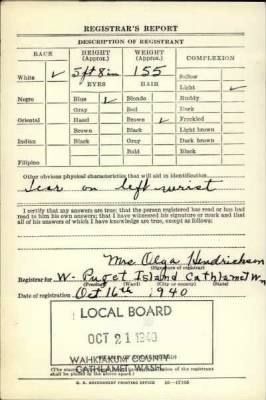 REGISTRAR'S REPORT
DESCRIPTION OF REGISTRANT
RACE HEIGHT (Approx.) WEIGHT (Approx.) COMPLEXION
White ✓ 5 ft 8 in 155 Sallow
EYES HAIR Light ✓
Negro Blue ✓ Blonde Ruddy
Gray Red Dark
Oriental Hazel Brown ✓ Freckled
Brown Black Light brown
Indian Black Gray Dark brown
Bald Black
Filipino
Other obvious physical characteristics that will aid in identification
Scar on left wrist
I certify that my answers are true; that the person registered has read or has had
read to him his own answers; that I have witnessed his signature or mark and that
all of his answers of which I have knowledge are true, except as follows:
Mrs. Olga Hendrickson
(Signature of registrar)
Registrar for W- Puget Island Cathlamet Wn
(Precinct) (Ward) (City or county) (State)
Date of registration Oct 16th 1940
LOCAL BOARD
OCT 21 1940
WAHKIAKUM COUNTY
CATHLAMET, WASH.
(The stamp of the Local Board having jurisdiction of the registrant
shall be placed in the above space.)
U. S. GOVERNMENT PRINTING OFFICE